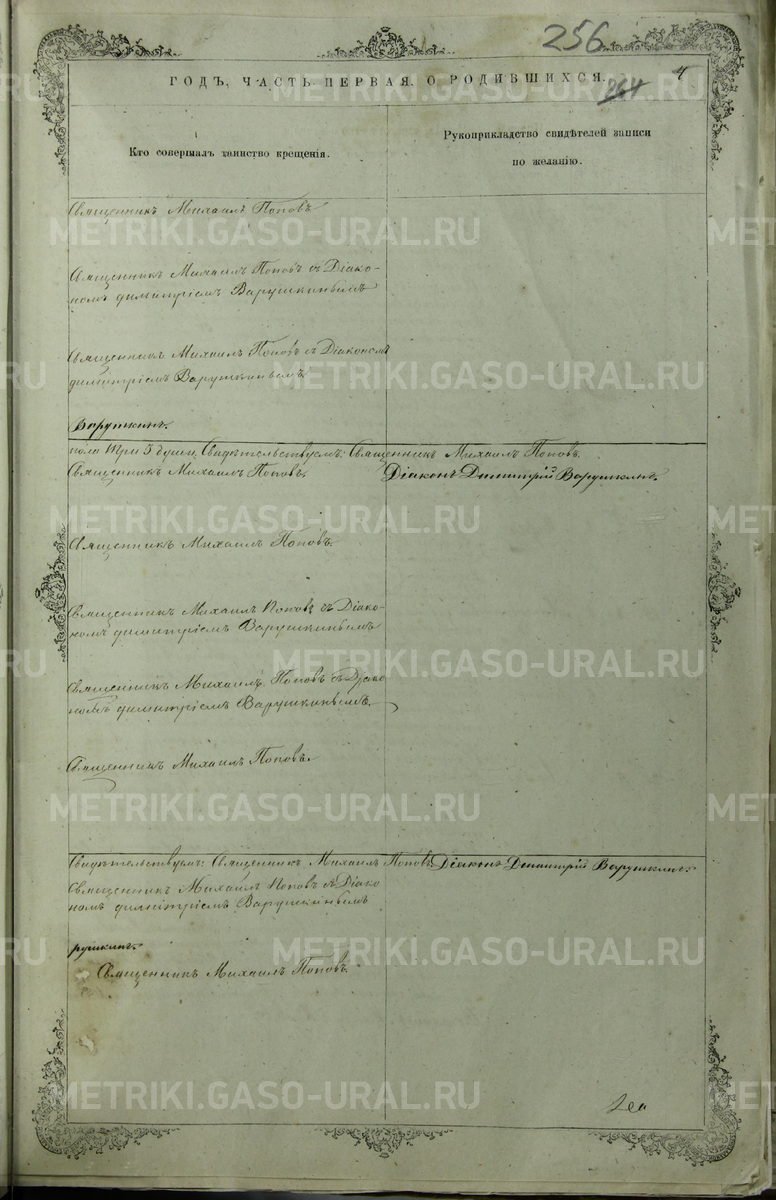 256
ГОДЪ, ЧАСТЬ ПЕРВАЯ, О РОДИВШИХСЯ.
264
4
Кто совершалъ таинство крещенія.
Рукоприкладство свидѣтелей записи
по желанію.
Священникъ Михаилъ Поповъ
Священникъ Михаилъ Поповъ съ Діако-
номъ Димитріемъ Варушкинымъ
Священникъ Михаилъ Поповъ съ Діакономъ
Димитріемъ Варушкинымъ
Варушкинъ.
пола три 3 души, Свидѣтельствуемъ: Священникъ Михаилъ Поповъ.
Священникъ Михаилъ Поповъ.
Діаконъ Димитрій Варушкинъ.
Священникъ Михаилъ Поповъ.
Священникъ Михаилъ Поповъ съ Діако-
номъ Димитріемъ Варушкинымъ
Священникъ Михаилъ Поповъ съ Діако
номъ Димитріемъ Варушкинымъ.
Священникъ Михаилъ Поповъ.
Свидѣтельствуемъ: Священникъ Михаилъ Поповъ Діаконъ Димитрій Варушкинъ.
Священникъ Михаилъ Поповъ съ Діако
номъ Димитріемъ Варушкинымъ
рушкинъ.
Священникъ Михаилъ Поповъ.
METRIKI.GASO-URAL.RU